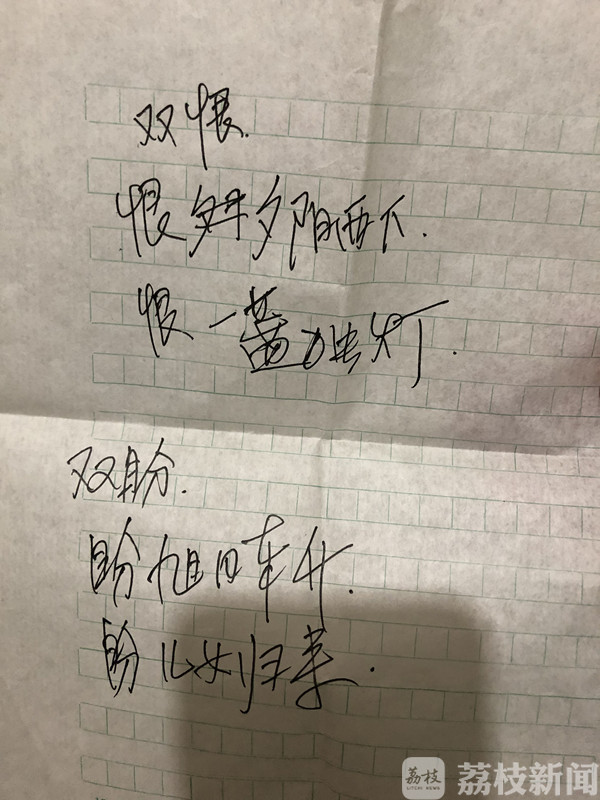 双恨.
恨夕阳西下.
恨一独灯.
双盼.
盼旭日东升.
盼儿女归来.
荔枝
LITCHI NEWS
荔枝新闻